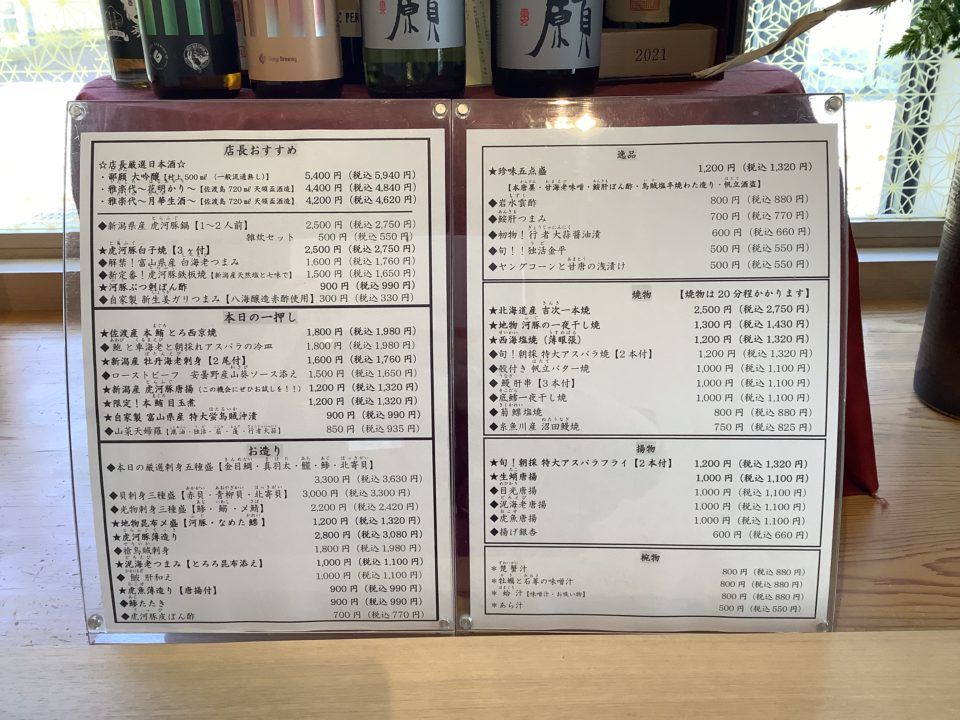 願
願
2021
店長おすすめ
☆店長厳選日本酒☆
・鄙願 大吟醸【村上500㎖ (一般流通無し)】 5,400円(税込5,940円)
・雅楽代～花明かり～【佐渡島 720㎖ 天領盃酒造】 4,400円(税込4,840円)
・雅楽代～月華生酒～【佐渡島 720㎖ 天領盃酒造】 4,200円(税込4,620円)
◆新潟県産 虎河豚鍋【1～2人前】 2,500円(税込2,750円)
雑炊セット 500円(税込550円)
★虎河豚白子焼【3ヶ付】 2,500円(税込2,750円)
◆解禁！富山県産 白海老つまみ 1,600円(税込1,760円)
◆新定番！虎河豚鉄板焼【新潟産天然塩と七味で】 1,500円(税込1,650円)
★河豚ぶつ刺ぽん酢 900円(税込990円)
◆自家製 新生姜ガリつまみ【八海醸造赤酢使用】 300円(税込330円)
本日の一押し
★佐渡産 本鮪 とろ西京焼 1,800円(税込1,980円)
◆鮑と車海老と朝採れアスパラの冷皿 1,800円(税込1,980円)
★新潟産 牡丹海老刺身【2尾付】 1,600円(税込1,760円)
◆ローストビーフ 安曇野産山葵ソース添え 1,500円(税込1,650円)
★新潟産 虎河豚唐揚(この機会にぜひお試しを！！) 1,200円(税込1,320円)
★限定！本鮪 目玉煮 1,200円(税込1,320円)
★自家製 富山県産 特大蛍烏賊沖漬 900円(税込990円)
◆山菜天婦羅 850円(税込935円)
お造り
◆本日の厳選刺身五種盛【金目鯛・真羽太・鱸・鰺・北寄貝】
3,300円(税込3,630円)
◆貝刺身三種盛【赤貝・青柳貝・北寄貝】 3,000円(税込3,300円)
◆光物刺身三種盛【鰺・鰯・〆鯖】 2,200円(税込2,420円)
★地物昆布〆盛【河豚・なめた鰈】 1,200円(税込1,320円)
★虎河豚薄造り 2,800円(税込3,080円)
◆槍烏賊刺身 1,800円(税込1,980円)
★泥海老つまみ【とろろ昆布添え】 1,000円(税込1,100円)
◆肝和え 1,000円(税込1,100円)
★虎魚薄造り【唐揚付】 900円(税込990円)
◆鰺たたき 900円(税込990円)
◆虎河豚皮ぽん酢 700円(税込770円)
逸品
★珍味五点盛 1,200円(税込1,320円)
【本唐墨・甘海老味噌・鮟肝ぽん酢・烏賊塩辛焼わた造り・帆立酒盗】
◆岩水雲酢 800円(税込880円)
◆鮟肝つまみ 700円(税込770円)
◆初物！行者大蒜醤油漬 600円(税込660円)
◆旬！！独活金平 500円(税込550円)
◆ヤングコーンと甘唐の浅漬け 500円(税込550円)
焼物 【焼物は20分程かかります】
★北海道産 吉次一本焼 2,500円(税込2,750円)
★地物 河豚の一夜干し焼 1,300円(税込1,430円)
★西海塩焼(薄眼張) 1,200円(税込1,320円)
◆旬！朝採 特大アスパラ焼【2本付】 1,200円(税込1,320円)
◆殻付き 帆立バター焼 1,000円(税込1,100円)
◆鰻肝串【3本付】 1,000円(税込1,100円)
◆底鱈一夜干し焼 1,000円(税込1,100円)
◆菊螺塩焼 800円(税込880円)
◆糸魚川産 沼田鰻焼 750円(税込825円)
揚物
★旬！朝採 特大アスパラフライ【2本付】 1,200円(税込1,320円)
★生蛸唐揚 1,000円(税込1,100円)
◆目光唐揚 1,000円(税込1,100円)
◆泥海老唐揚 1,000円(税込1,100円)
◆虎魚唐揚 1,000円(税込1,100円)
◆揚げ銀杏 600円(税込660円)
椀物
＊楚蟹汁 800円(税込880円)
＊牡蠣と石蓴の味噌汁 800円(税込880円)
＊蛤汁【味噌汁・お吸い物】 800円(税込880円)
＊あら汁 500円(税込550円)